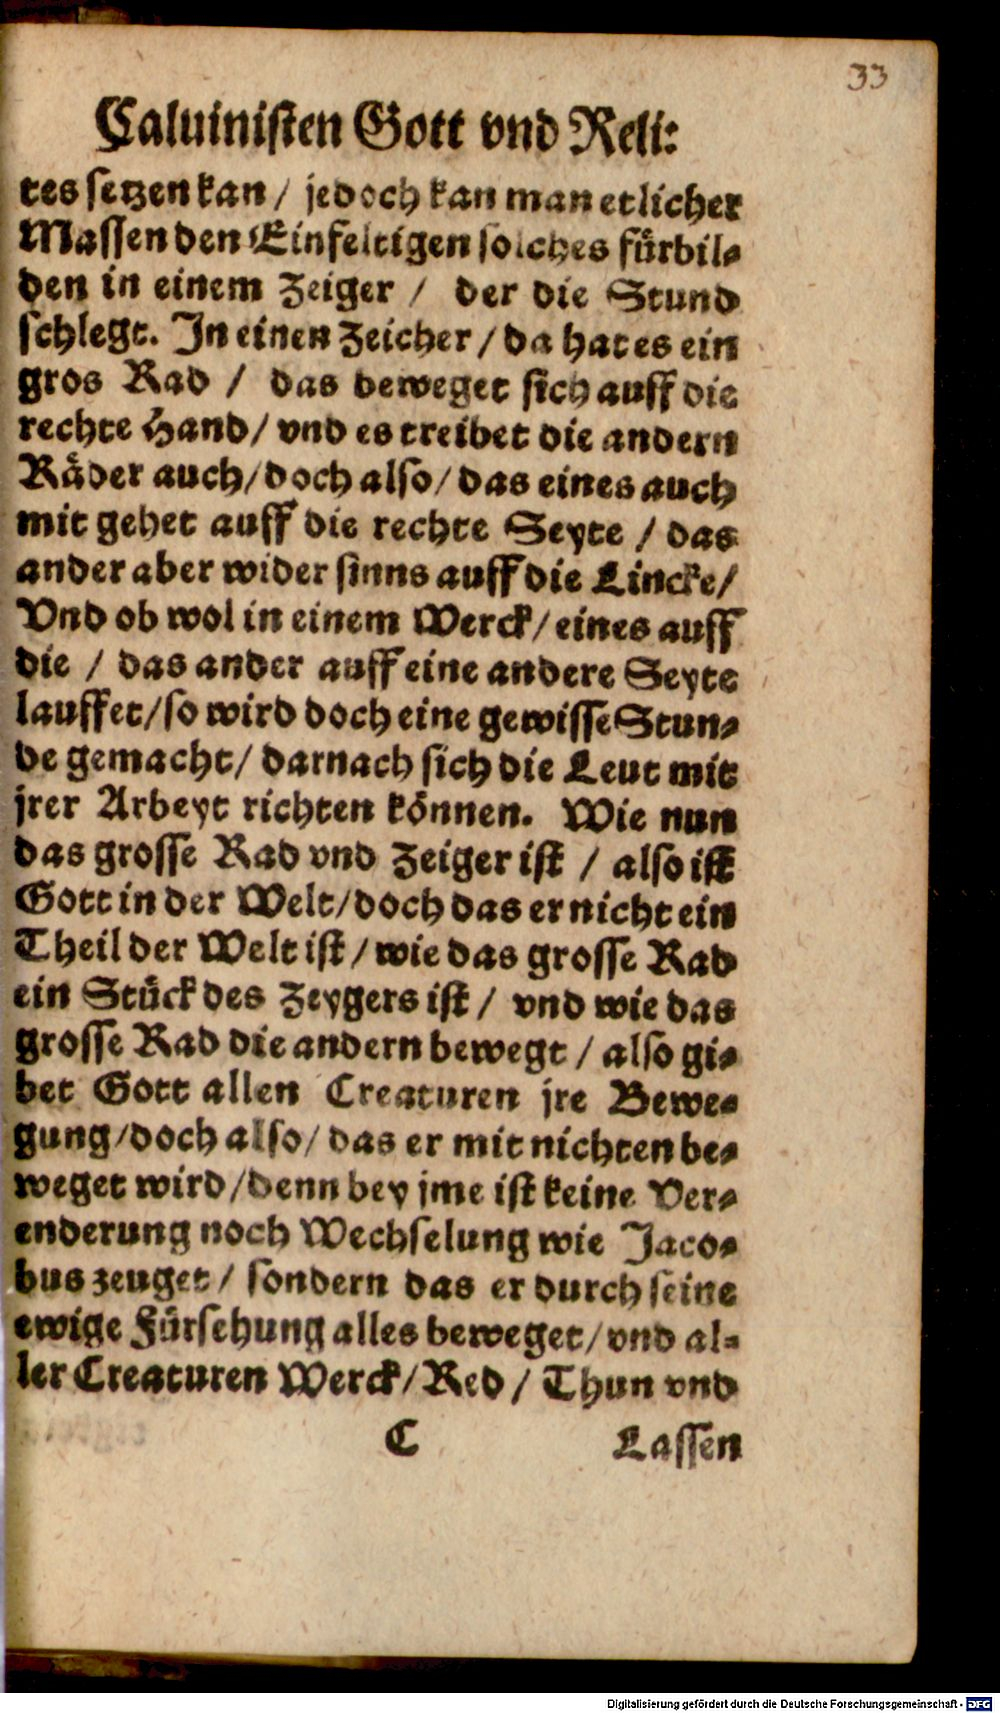 33
Caluinisten Gott vnd Reli:
tes setzen kan / jedoch kan man etlicher
Massen den Einfeltigen solches fürbil-
den in einem Zeiger / der die Stund
schlegt. In einen Zeicher / da hat es ein
gros Rad / das beweget sich auff die
rechte Hand / vnd es treibet die andern
Räder auch / doch also / das eines auch
mit gehet auff die rechte Seyte / das
ander aber wider sinns auff die Lincke /
Vnd ob wol in einem Werck / eines auff
die / das ander auff eine andere Seyte
lauffet / so wird doch eine gewisse Stun-
de gemacht / darnach sich die Leut mit
jrer Arbeyt richten können. Wie nun
das grosse Rad vnd Zeiger ist / also ist
Gott in der Welt / doch das er nicht ein
Theil der Welt ist / wie das grosse Rad
ein Stück des Zeygers ist / vnd wie das
grosse Rad die andern bewegt / also gi-
bet Gott allen Creaturen jre Bewe-
gung / doch also / das er mit nichten be-
weget wird / denn bey jme ist keine Ver-
enderung noch Wechselung wie Jaco-
bus zeuget / sondern das er durch seine
ewige Fürsehung alles beweget / vnd al-
ler Creaturen Werck / Red / Thun vnd
C Lassen
Digitalisierung gefördert durch die Deutsche Forschungsgemeinschaft - DFG